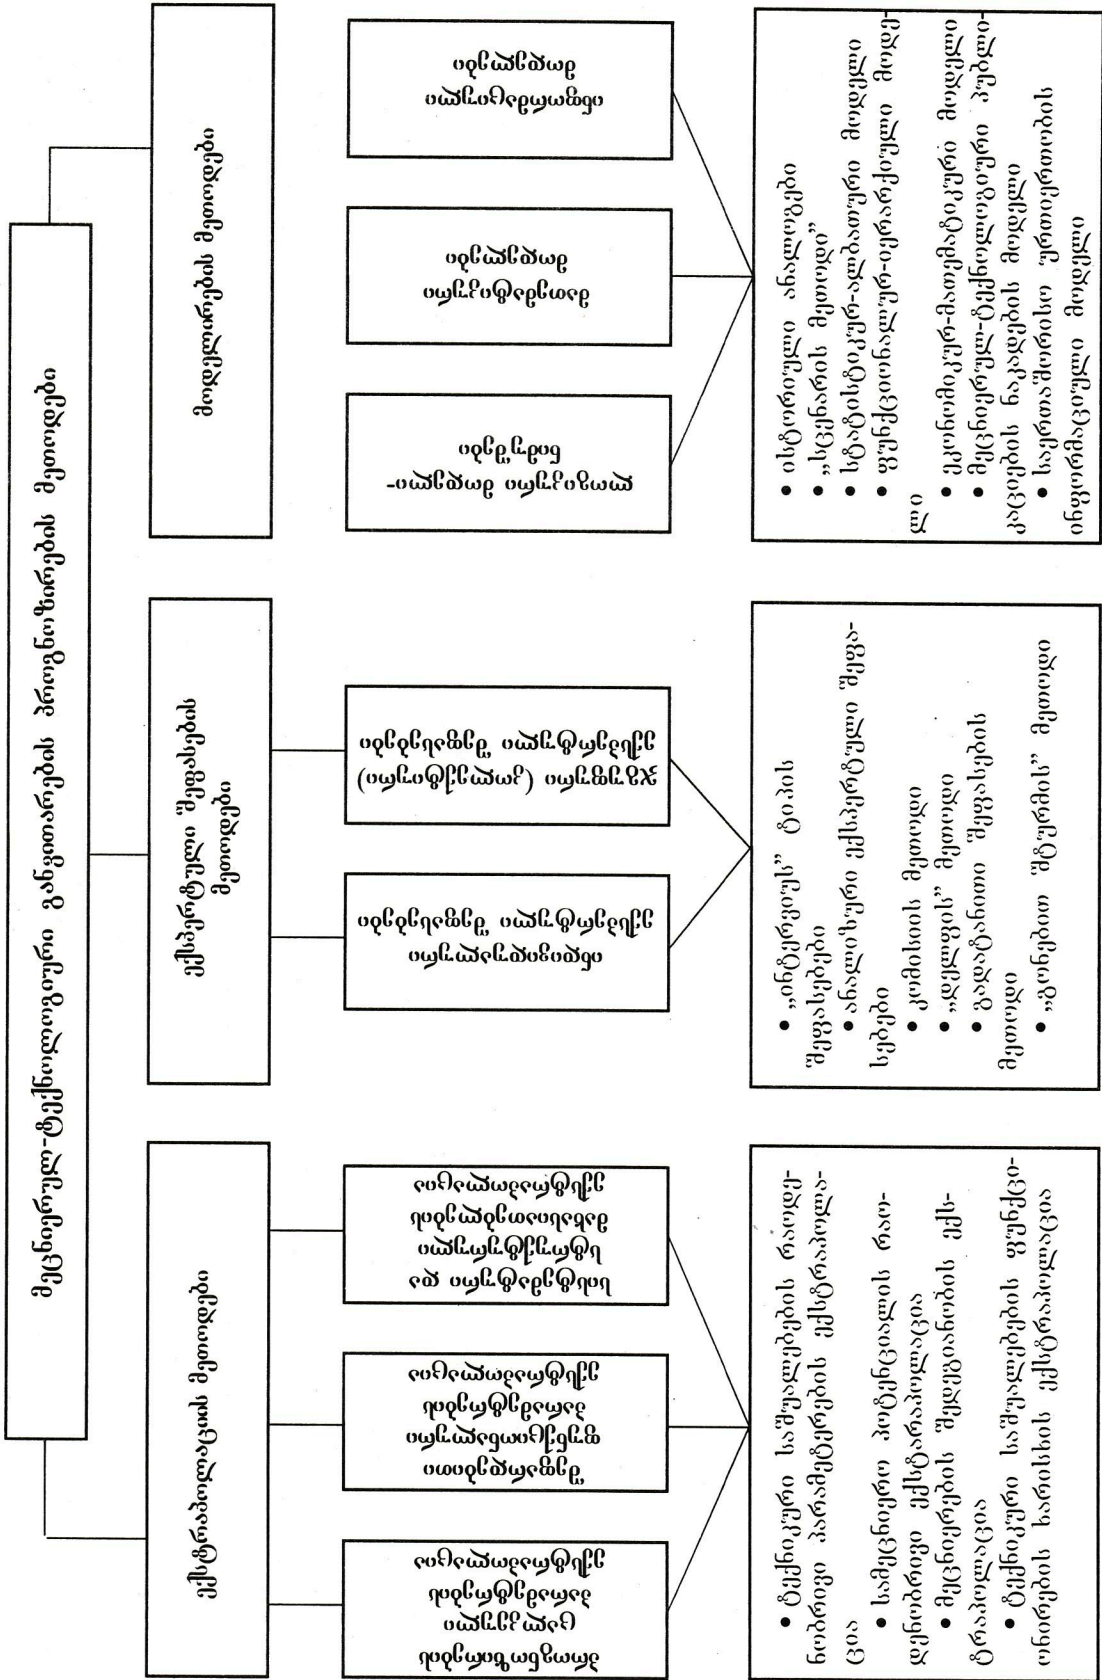 მეცნიერულ-ტექნოლოგიური განვითარების პროგნოზირების მეთოდები
ექსტრაპოლაციის მეთოდები
პროგნოზირების
ცალკეული
პარამეტრების
ექსტრაპოლაცია
შეფარდებითი
ფუნქციონალური
პარამეტრების
ექსტრაპოლაცია
სისტემატური და
სტრუქტურული
მახასიათებლების
ექსტრაპოლაცია
• ტექნიკური საშუალებების რაოდე-
ნობრივი პარამეტრების ექსტრაპოლა-
ცია
• სამეცნიერო პოტენციალის რაო-
დენობრივი ექსტარაპოლაცია
• მეცნიერების შედეგიანობის ექს-
ტრაპოლაცია
• ტექნიკური საშუალებების ფუნქცი-
ონირების ხარისხის ექსტრაპოლაცია
ექსპერტული შეფასების
მეთოდები
ინდივიდუალური
ექსპერტული შეფასებები
ჯგუფური (კოლექტიური)
ექსპერტული შეფასებები
• „ინტერვიუს” ტიპის
შეფასებები
• ანალიზური ექსპერტული შეფა-
სებები
• კომისიის მეთოდი
• „დელფის” მეთოდი
• გადატანითი შეფასების
მეთოდი
• „გონებით შტურმის” მეთოდი
მოდელირების მეთოდები
ლოგიკური მოდელი-
ნიმუშები
მათემატიკური
მოდელები
ინფორმაციული
მოდელები
• ისტორიული ანალოგები
• „სცენარის მეთოდი”
• სტატისტიკურ-ალბათური მოდელი
• ფუნქციონალურ-იერარქიული მოდე-
ლი
• ეკონომიკურ-მათემატიკური მოდელი
• მეცნიერულ-ტექნოლოგიური პუბლი-
კაციების ნაკადების მოდელი
• საერთაშორისო ურთიერთობის
ინფორმაციული მოდელი